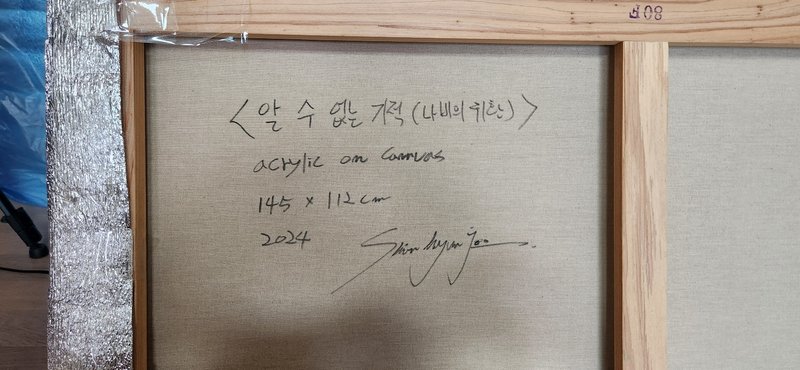 108
<알 수 없는 기적 (나비의 귀환)>
acrylic on canvas
145 x 112 cm
2024 Shin hyun joo